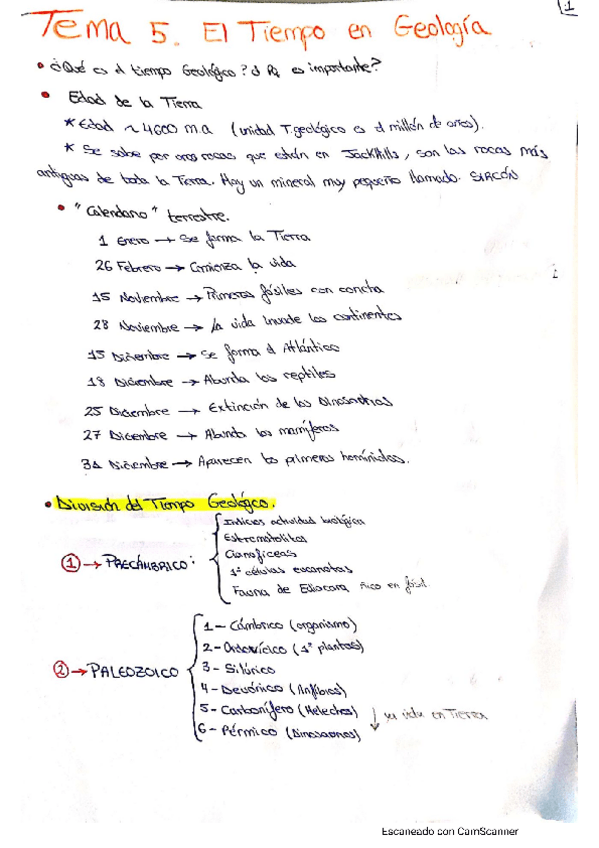 1
Tema 5. El Tiempo en Geología
• ¿Qué es el tiempo Geológico? ¿Pq es importante?
• Edad de la Tierra
* Edad ~ 4600 m.a (unidad T.geológico es el millón de años).
* Se sabe por unas rocas que están en JackHills, son las rocas más
antiguas de toda la Tierra. Hay un mineral muy pequeño llamado. SIRCÓN
• "Calendario" terrestre.
1 Enero → Se forma la Tierra
26 Febrero → Comienza la vida
15 Noviembre → Primeros fósiles con concha
28 Noviembre → La vida invade los continentes
15 Diciembre → Se forma el Atlántico
18 Diciembre → Abunda los reptiles
25 Diciembre → Extinción de los Dinosaurios
27 Diciembre → Abunda los mamíferos
31 Diciembre → Aparecen los primeros homínidos.
• División del Tiempo Geológico.
① → PRECÁMBRICO:
Indicios actividad biológica
Estromatolitos
Cianofíceas
1ª células eucariotas
Fauna de Ediacara rico en fósil
② → PALEOZOICO
1 - Cámbrico (organismo)
2 - Ordovícico (1ª plantas)
3 - Silúrico
4 - Devónico (Anfibios)
5 - Carbonífero (Helechos) ↓ ya vida en Tierra
6 - Pérmico (Dinosaurios)
Escaneado con CamScanner